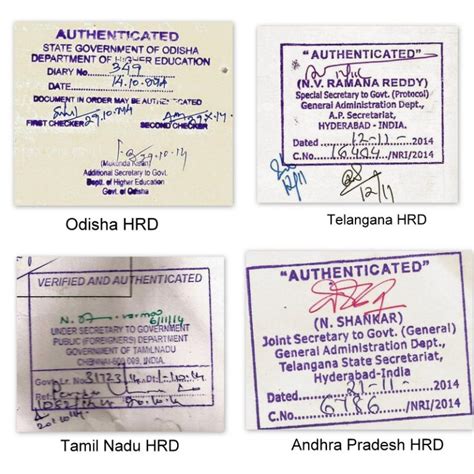 AUTHENTICATED
STATE GOVERNMENT OF ODISHA
DEPARTMENT OF HIGHER EDUCATION
DIARY No. 349
DATE 14.10.
DOCUMENT IN ORDER MAY BE AUTHENTICATED
29.10.
FIRST CHECKER SECOND CHECKER
29.10.14
(Mukunda
Additional Secretary to Govt.
Deptt. of Higher Education
Govt. of Odisha
Odisha HRD
"AUTHENTICATED"
(N.V. RAMANA REDDY)
Special Secretary to Govt. (Protocol)
General Administration Dept.,
A.P. Secretariat,
HYDERABAD - INDIA.
Dated 12-11- 2014
C.No. 16404 /NRI/2014
12/11
12/11
Telangana HRD
VERIFIED AND AUTHENTICATED
6/11/14
UNDER SECRETARY TO GOVERNMENT
PUBLIC (FOREIGNERS) DEPARTMENT
GOVERNMENT OF TAMILNADU
CHENNAI-600 009, INDIA.
Tamil Nadu HRD
"AUTHENTICATED"
(N. SHANKAR)
Joint Secretary to Govt. (General)
General Administration Dept.,
Telangana State Secretariat,
Hyderabad-India
Dt. 21-11- 2014
C.No. 6786 /NRI/2014
Andhra Pradesh HRD